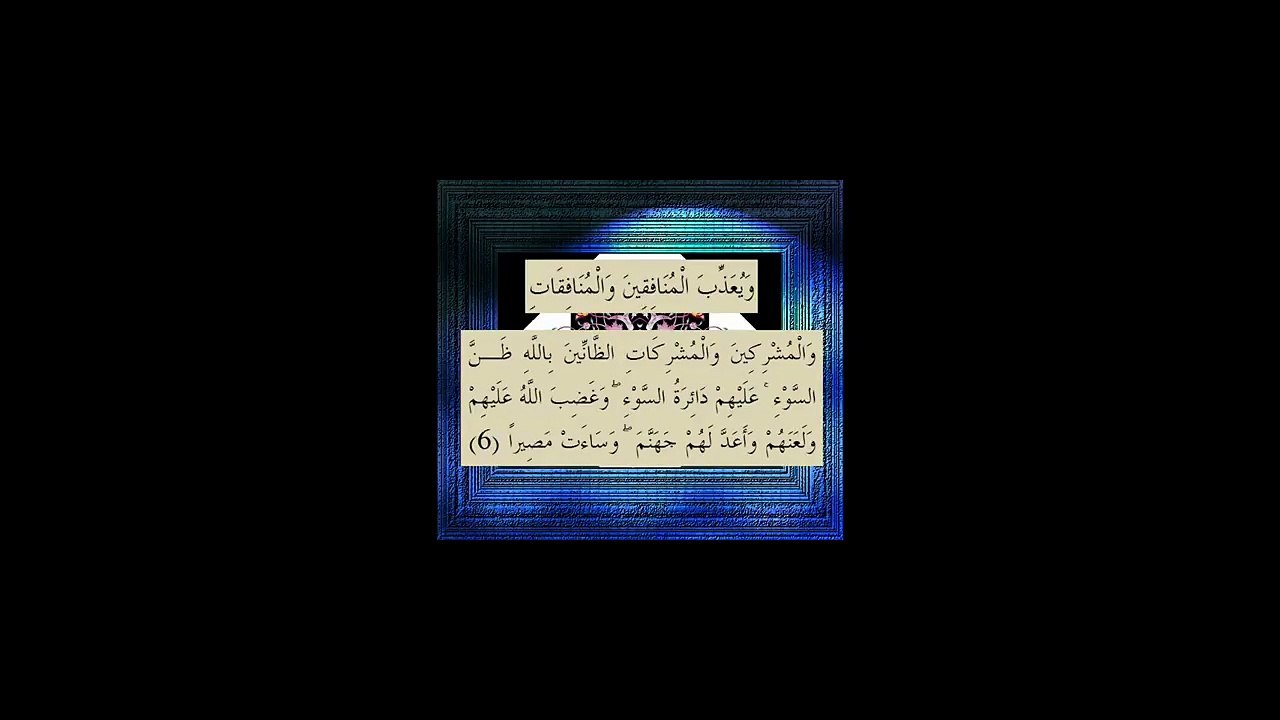 وَيُعَذِّبَ الْمُنَافِقِينَ وَالْمُنَافِقَاتِ
وَالْمُشْرِكِينَ وَالْمُشْرِكَاتِ الظَّانِّينَ بِاللَّهِ ظَــنَّ
السَّوْءِ ۚ عَلَيْهِمْ دَائِرَةُ السَّوْءِ ۖ وَغَضِبَ اللَّهُ عَلَيْهِمْ
وَلَعَنَهُمْ وَأَعَدَّ لَهُمْ جَهَنَّمَ ۖ وَسَاءَتْ مَصِيراً (6)